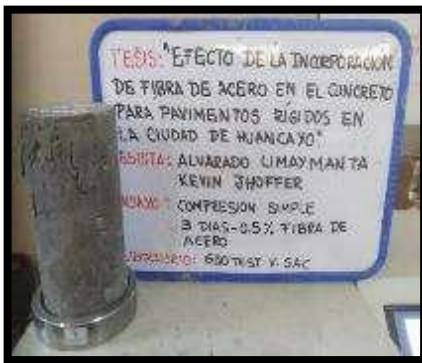 TESIS: "EFECTO DE LA INCORPORACION
DE FIBRA DE ACERO EN EL CONCRETO
PARA PAVIMENTOS RÍGIDOS EN
LA CIUDAD DE HUANCAYO"
TESISTA: ALVARADO LIMAYMANTA
KEVIN JHOFFER
ENSAYO: COMPRESION SIMPLE
3 DIAS-0.5% FIBRA DE
ACERO
LABORATORIO: GEO TEST V. SAC